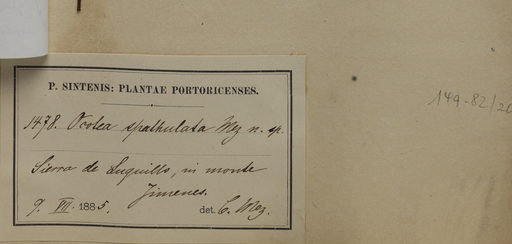 P. SINTENIS: PLANTAE PORTORICENSES.
1478. Ocotea spathulata Mez n. sp.
Sierra de Luquillo, in monte
Jimenes.
9. VII. 1885. det. C. Mez.
149-82/20